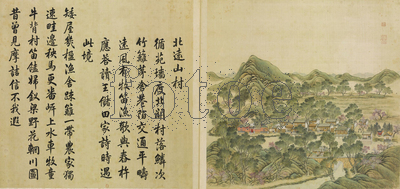 北遠山村
循苑墻度北關村落鱗次
竹籬茅舍巷陌交通平疇
遠風有牧笛漁歌與舂杵
應答讀王儲田家詩時遇
此境
矮屋幾楹漁舍疎籬一帶農家獨
速畦邊秧馬更番岸上水車牧童
牛背村笛饁婦釵梁野花輞川圖
昔曾見摩詰信不我遐